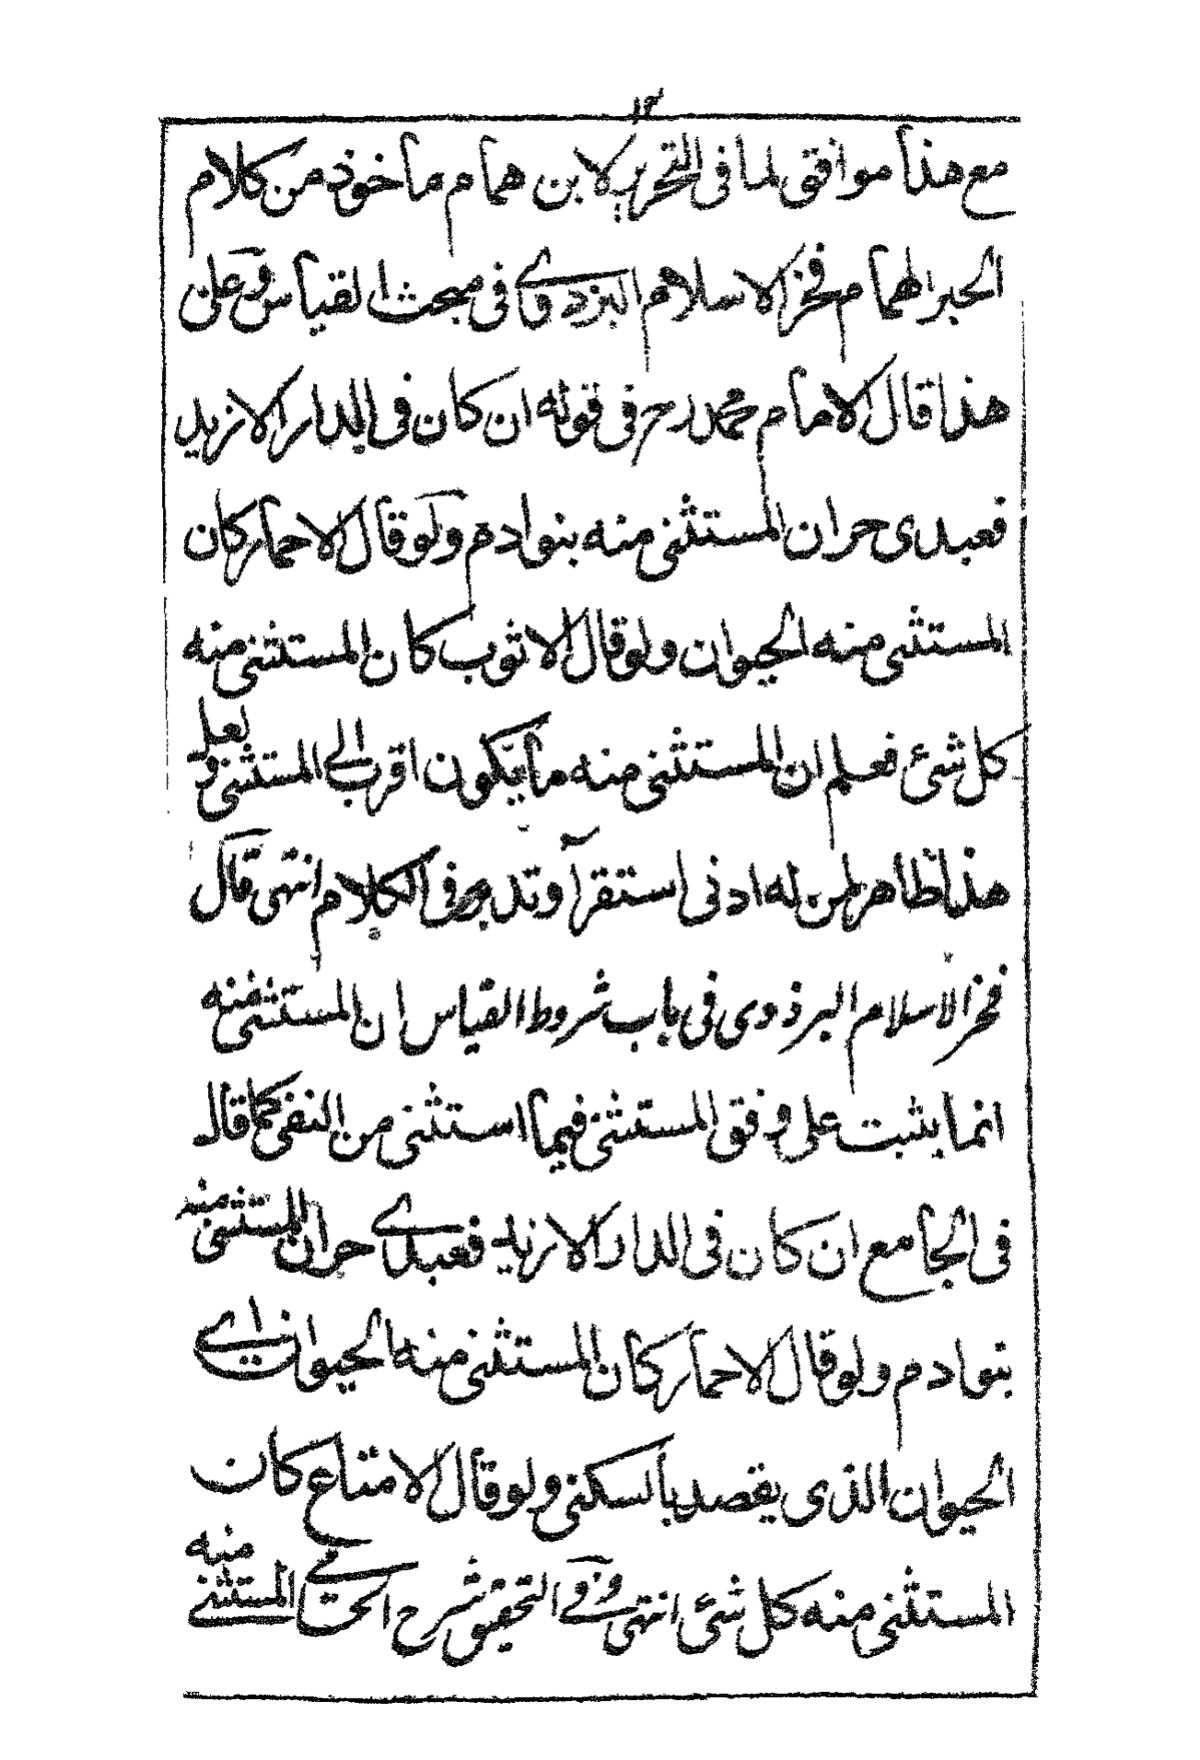 ١٣
مع هذا موافق لما فى التحرير لابن همام مأخوذ من كلام
الحبر الهمام فخر الاسلام البزدوى فى مبحث القياس وعلى
هذا قال الامام محمد رح فى قوله ان كان فى الدار الا زيد
فعبدى حر ان المستثنى منه بنو ادم ولو قال الا حمار كان
المستثنى منه الحيوان ولو قال الا ثوب كان المستثنى منه
كل شئ فعلم ان المستثنى منه ما يكون اقرب الى المستثنى و لعل
هذا ظاهر لمن له ادنى استقرآ وتدبر فى الكلام انتهى قال
فخر الاسلام البرذوى فى باب شروط القياس ان المستثنى منه
انما يثبت على وفق المستثنى فيما استثنى من النفى كما قال
فى الجامع ان كان فى الدار الا زيد فعبدى حر ان المستثنى منه
بنو ادم ولو قال الا حمار كان المستثنى منه الحيوان اى
الحيوان الذى يقصد بالسكنى ولو قال الا متاع كان
المستثنى منه كل شئ انتهى وفى التحقيق شرح الحسامى المستثنى منه